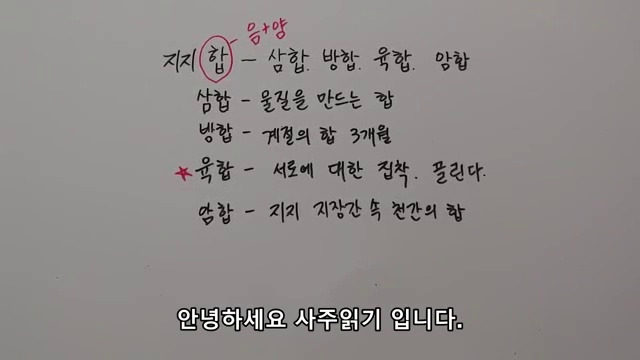 음+양
지지 합 - 삼합. 방합. 육합. 암합
삼합 - 물질을 만드는 합
방합 - 계절의 합 3개월
★육합 - 서로에 대한 집착. 끌린다.
암합 - 지지 지장간 속 천간의 합
안녕하세요 사주읽기 입니다.